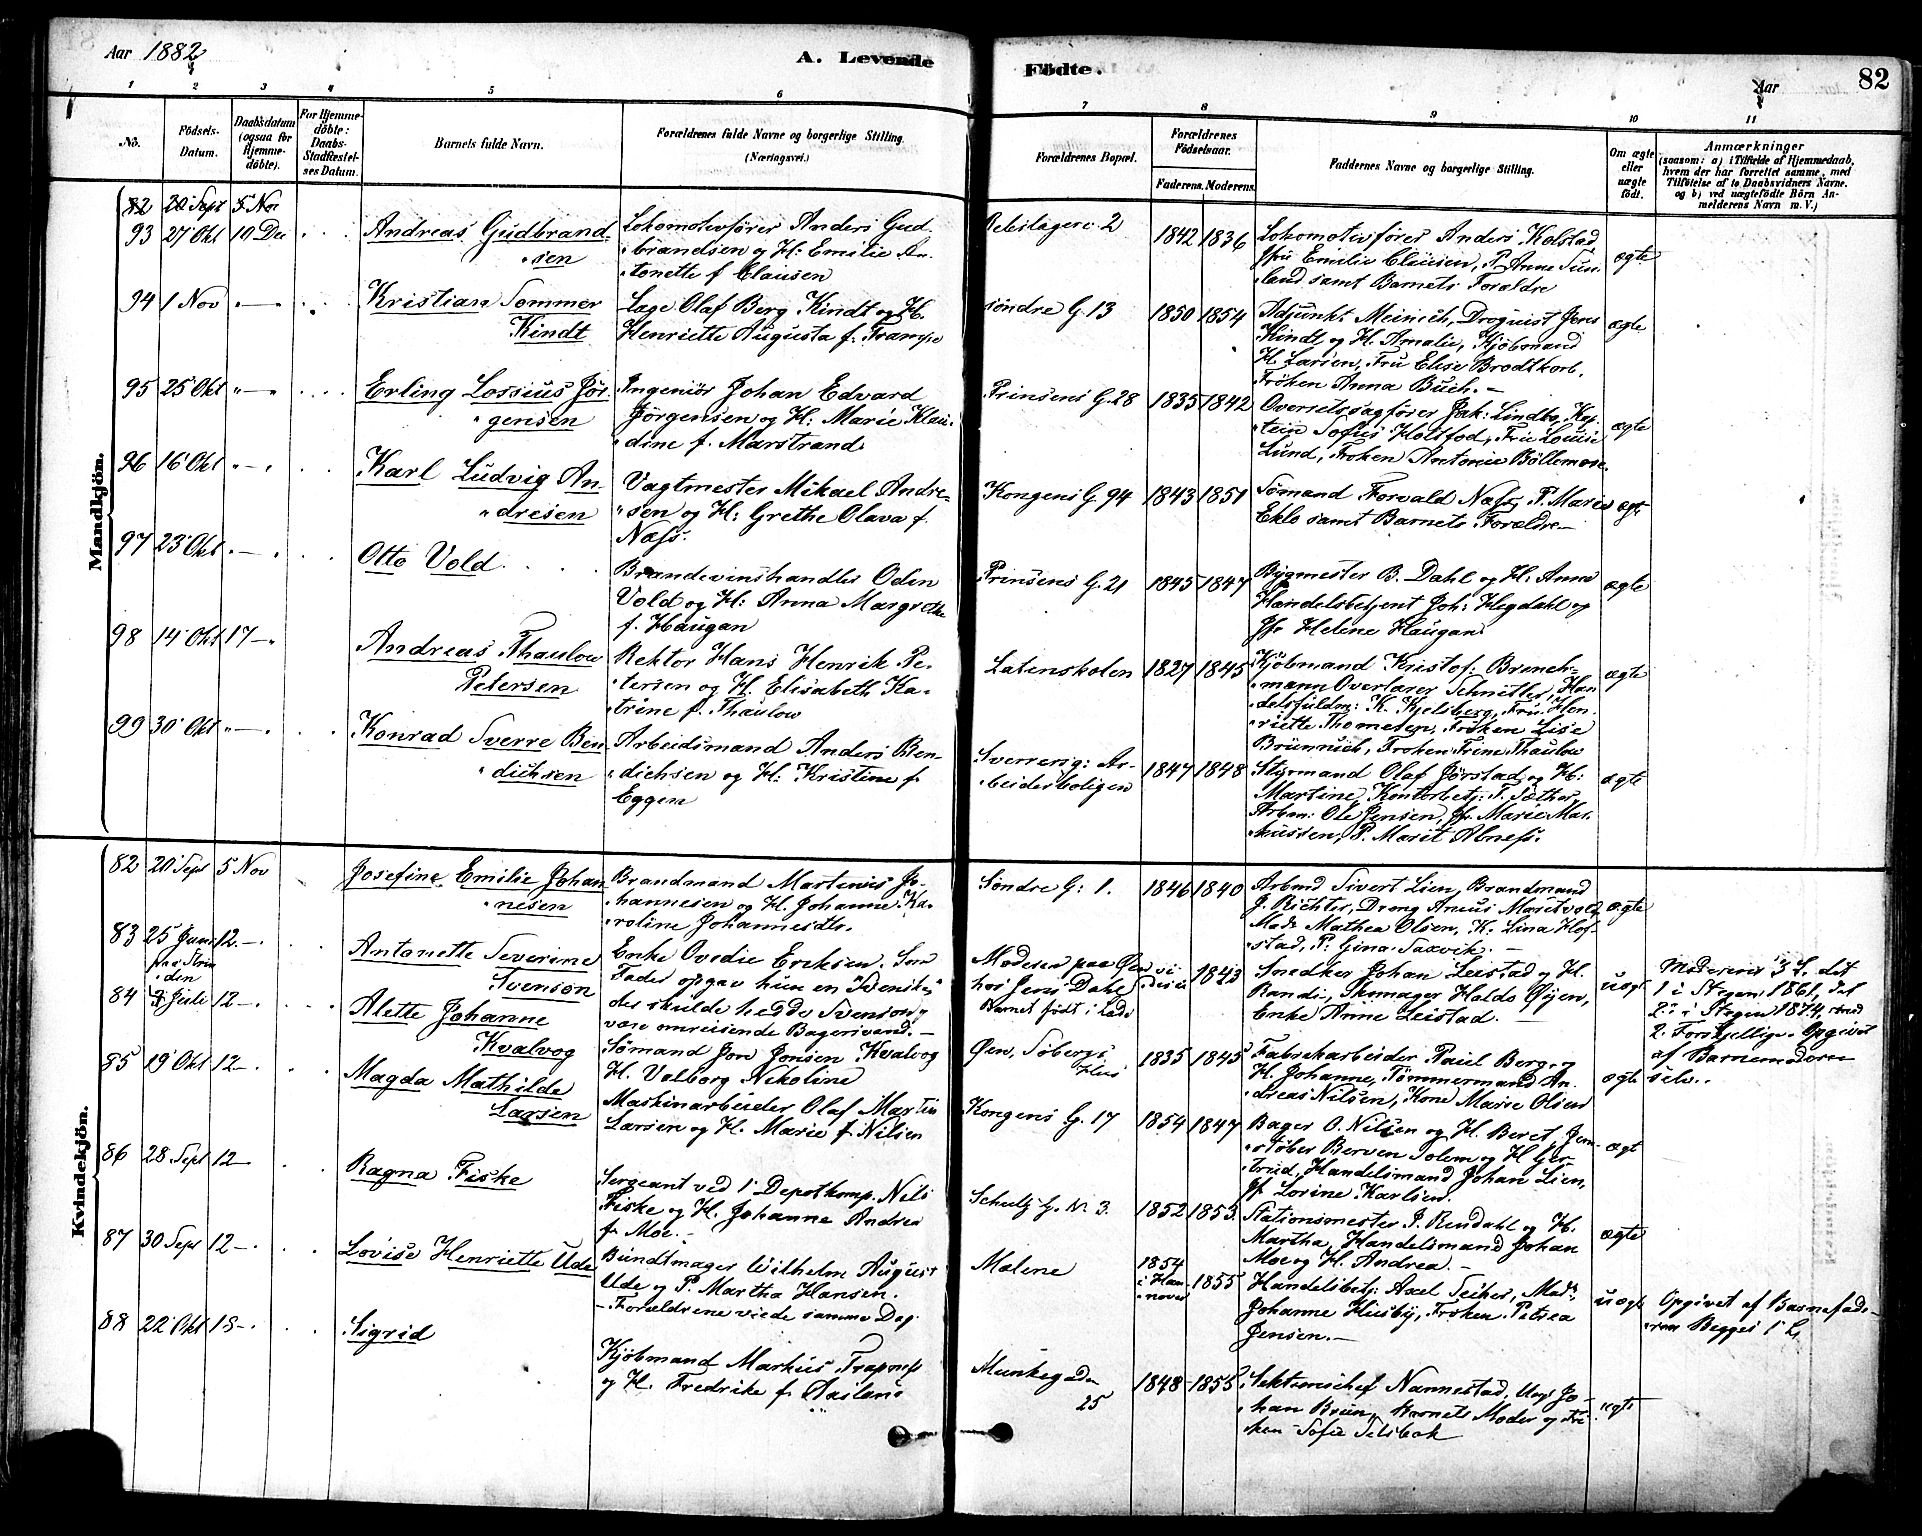 Aar 1882
A. Levende
Fødte.
Aar
82
1 2 3 4 5 6 7 8 9 10 11
No.
Fødsels-
Datum.
Daabsdatum
(ogsaa for
Hjemme-
døbte).
For Hjemme-
døbte:
Daabs-
Stadfæstel-
ses Datum.
Barnets fulde Navn.
Forældrenes fulde Navne og borgerlige Stilling.
(Næringsvei.)
Forældrenes Bopæl.
Forældrenes
Fødselsaar.
Faderens. Moderens.
Faddernes Navne og borgerlige Stilling.
Om ægte
eller
uægte
født.
Anmærkninger
(saasom: a) i Tilfælde af Hjemmedaab,
hvem der har forrettet samme, med
Tilføielse af to Daabsvidners Navne.
og b) ved uægtefødte Børn An-
melderens Navn m. V.)
Mandkjön.
82 20 Sept 5 Nov
93 27 Okt 10 Dec
Andreas Gudbrand-
sen
Lokomotivfører Anders Gud-
brandsen og H: Emilie An-
tonette f. Clausen
2
1842 1836
Lokomotivfører Anders Kolstad
Emilie Clausen, P. Anne Sun-
land samt Barnets Forældre
ægte
94 1 Nov
Kristian Sommer
Kindt
Læge Olaf Berg Kindt og H.
Henriette Augusta f.
Søndre G. 13
1850 1854
Adjunkt Meinich, Droguist Jens
Kindt og H. Amalie, Kjøbmand
H. Larsen, Fru Elise Brodtkorb,
Frøken Anna Buch.
ægte
95 25 Okt
Erling Lossius Jør-
gensen
Ingeniør Johan Edvard
Jørgensen og H: Marie Klau-
dine f. Marstrand
Prinsens G. 28
1835 1842
Overretssagfører Jak: Lindbo, Kap-
tein Sofus Holsfod, Fru Louise
Lund, Frøken Antonie Bøllemose
ægte
96 16 Okt
Karl Ludvig An-
dresen
Vagtmester Mikael Andre-
sen og H: Grethe Olava f.
Næss.
Kongens G. 94
1843 1851
Sømand Torvald Næss, P. Maren
Eklo samt Barnets Forældre
ægte
97 23 Okt
Otto Vold
Brændevinshandler Oden
Vold og H: Anna Margrethe
f. Haugan
Prinsens G. 21
1845 1847
Bygmester B. Dahl og H. Anna
Handelsbetjent Joh: Hegdahl og
Jfr Helene Haugan
ægte
98 14 Okt 17
Andreas Thaulow
Petersen
Rektor Hans Henrik Pe-
tersen og H. Elisabeth Ka-
trine f. Thaulow
Latinskolen
1827 1845
Kjøbmand Kristof. Brench-
mann Overlærer Schnitler, Han-
delsfuldm: K. Kjelsberg, Fru Hen-
riette Thomesen, Frøken Lise
Brünnich, Frøken Trine Thaulow
ægte
99 30 Okt
Konrad Sverre Ben-
dichsen
Arbeidsmand Anders Ben-
dichsen og H: Kristine f.
Eggen
Sverresg: Ar-
beiderboligen
1847 1848
Styrmand Olaf Jørstad og H:
Martine, Kontorbetj: T. Sæther
Arbm: Ole Jensen, Jfr Marie Mar-
kussen, P. Marit Abness.
ægte
Kvindekjön.
82 20 Sept 5 Nov
Josefine Emilie Johan-
nesen
Brandmand Martenus Jo-
hannesen og H. Johanne Ka-
roline Johannesdtr.
Søndre G: 1.
1846 1840
Arbmd Sivert Lien, Brandmand
J. Richter, Dreng Anius Maritvold
Mad: Mathea Olsen, K. Lina Hof-
stad, P. Gina Saxvik.
ægte
83 25 Juni 12
paa Strin-
den
Antonette Severine
Svenson
Enke Ovedie Eriksen. Som
Fader opgav hun en Svensker
der skulde hedde Svenson og
være omreisende Bagersvend.
Moderen paa Øen
hos Jens Dahl
Barnet født i Lade
1843
Snedker Johan Leistad og H.
Randi, Skomager Haldo Øyen,
Enke Anne Leistad.
uægte
Moderens 3 L. det
1 i Stegen 1861, det
2 i Stegen 1874, med
2 Forskjellige. Opgivet
af Barnemoderen
selv.
84 Juli 12
Alette Johanne
Kvalvog
Sømand Jon Jonsen Kvalvog
H. Valborg Nikoline
Øen, Søbergs
Hus
1835 1845
Fabrikarbeider Paul Berg og
H. Johanne, Tømmermand An-
dreas Nilsen, Kone Marie Olsen
ægte
85 19 Okt 12
Magda Mathilde
Larsen
Maskinarbeider Olaf Martin
Larsen og H. Marie f. Nilsen
Kongens G. 17
1854 1847
Bager O. Nilsen og H. Beret Jern-
støber Berven Solem og H Ger-
trud, Handelsmand Johan Lien,
Jf Lorine Karlsen.
ægt
86 28 Sept 12
Ragna Fiske
Sergeant ved 1 Depotkomp. Nils
Fiske og H. Johanne Andrea
f. Moe.
Schultz G. N. 3.
1852 1853
Stationsmester J. Rendahl og H.
Martha, Handelsmand Johan
Moe og H. Andrea.
ægte
87 30 Sept 12
Lovise Henriette Ude
Bundtmager Wilhelm August
Ude og P. Martha Hansen.
Forældrene viede samme Dag
Molene
1854
i Han-
nover
1855
Handelsbetj: Axel Seiker, Mad:
Johanne Husby, Frøken Petrea
Jensen.
uægte
Opgivet af Barnefade-
ren Begges 1 L.
88 22 Okt 13
Sigrid
Kjøbmand Markus Trapness
og H. Fredrike f.
Munkegaden
25
1848 1855
Sektionschef Nannestad, Ung: Jo-
han Brun, Barnets Moder og Frø-
ken Sofie Selsbak
ægte